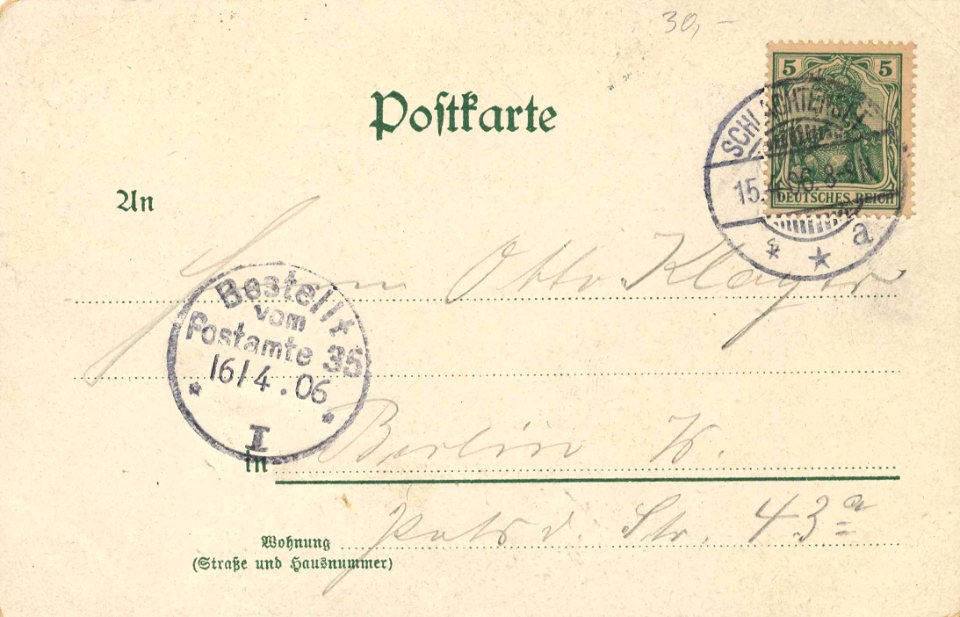 30,-
Postkarte
5 5
DEUTSCHES REICH
SCHLACHTENSEE
15.4.06. 8-9 N
* * a
An
Herrn Otto Klager
Bestellt
vom
Postamte 35
16/4.06
* *
I
in Berlin W.
Wohnung Potsd. Str. 43a
(Straße und Hausnummer)